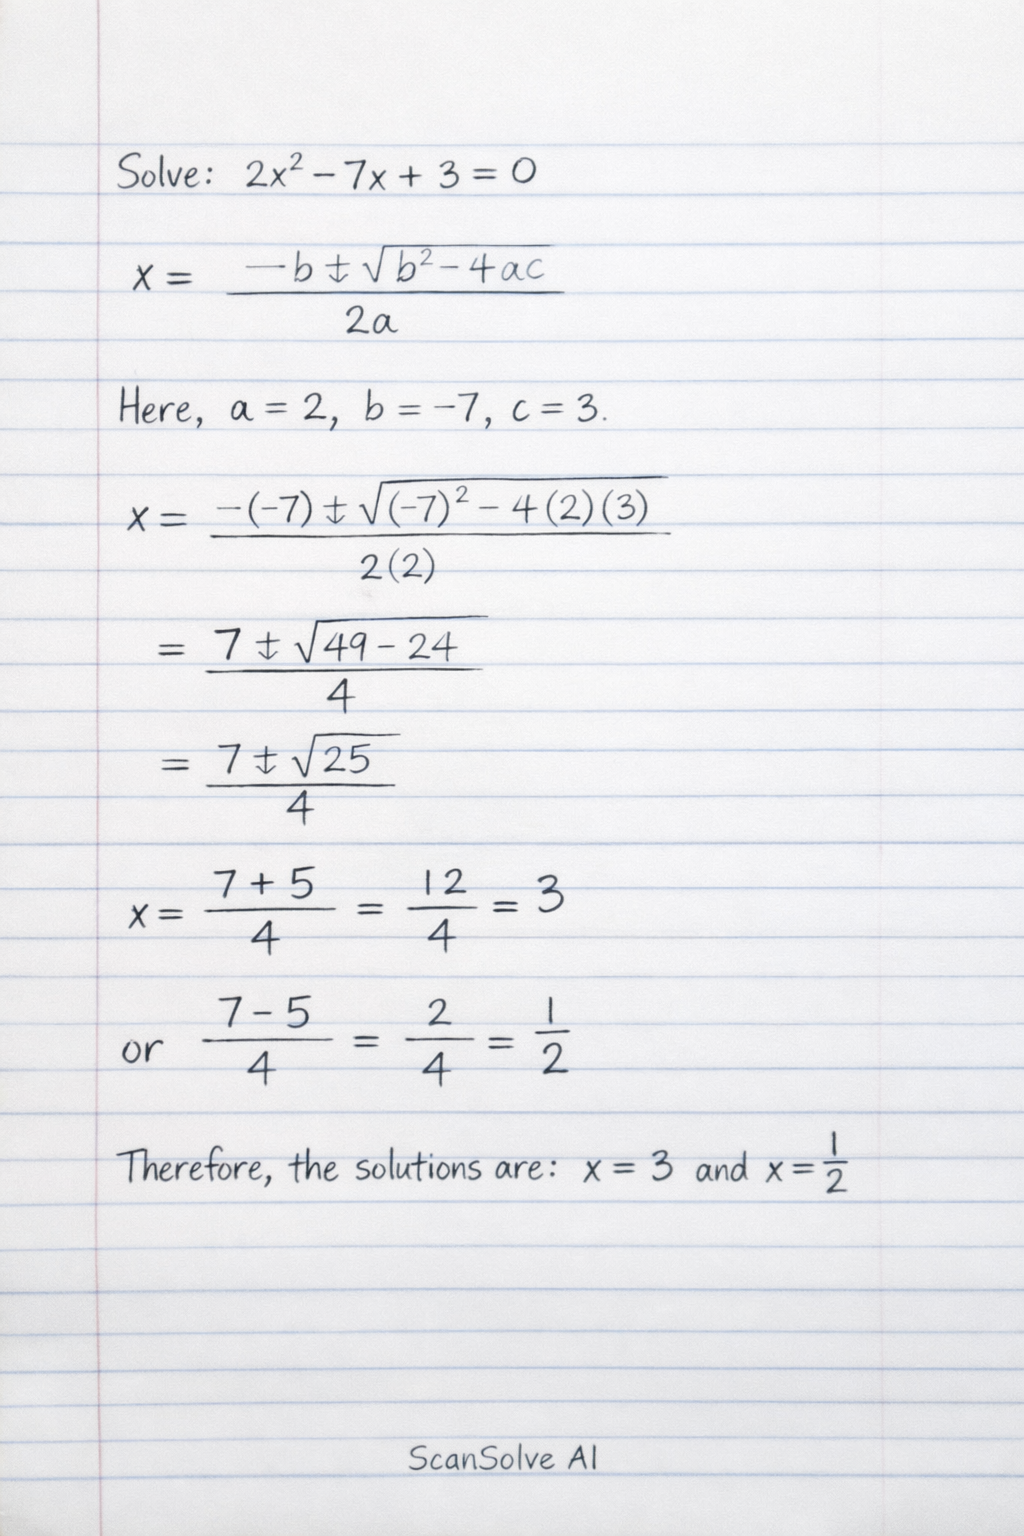 Solve: 2x² − 7x + 3 = 0
x = (−b ± √(b² − 4ac)) / 2a
Here, a = 2, b = −7, c = 3.
x = (−(−7) ± √((−7)² − 4(2)(3))) / 2(2)
= (7 ± √(49 − 24)) / 4
= (7 ± √25) / 4
x = (7 + 5)/4 = 12/4 = 3
or (7 − 5)/4 = 2/4 = 1/2
Therefore, the solutions are: x = 3 and x = 1/2
ScanSolve AI